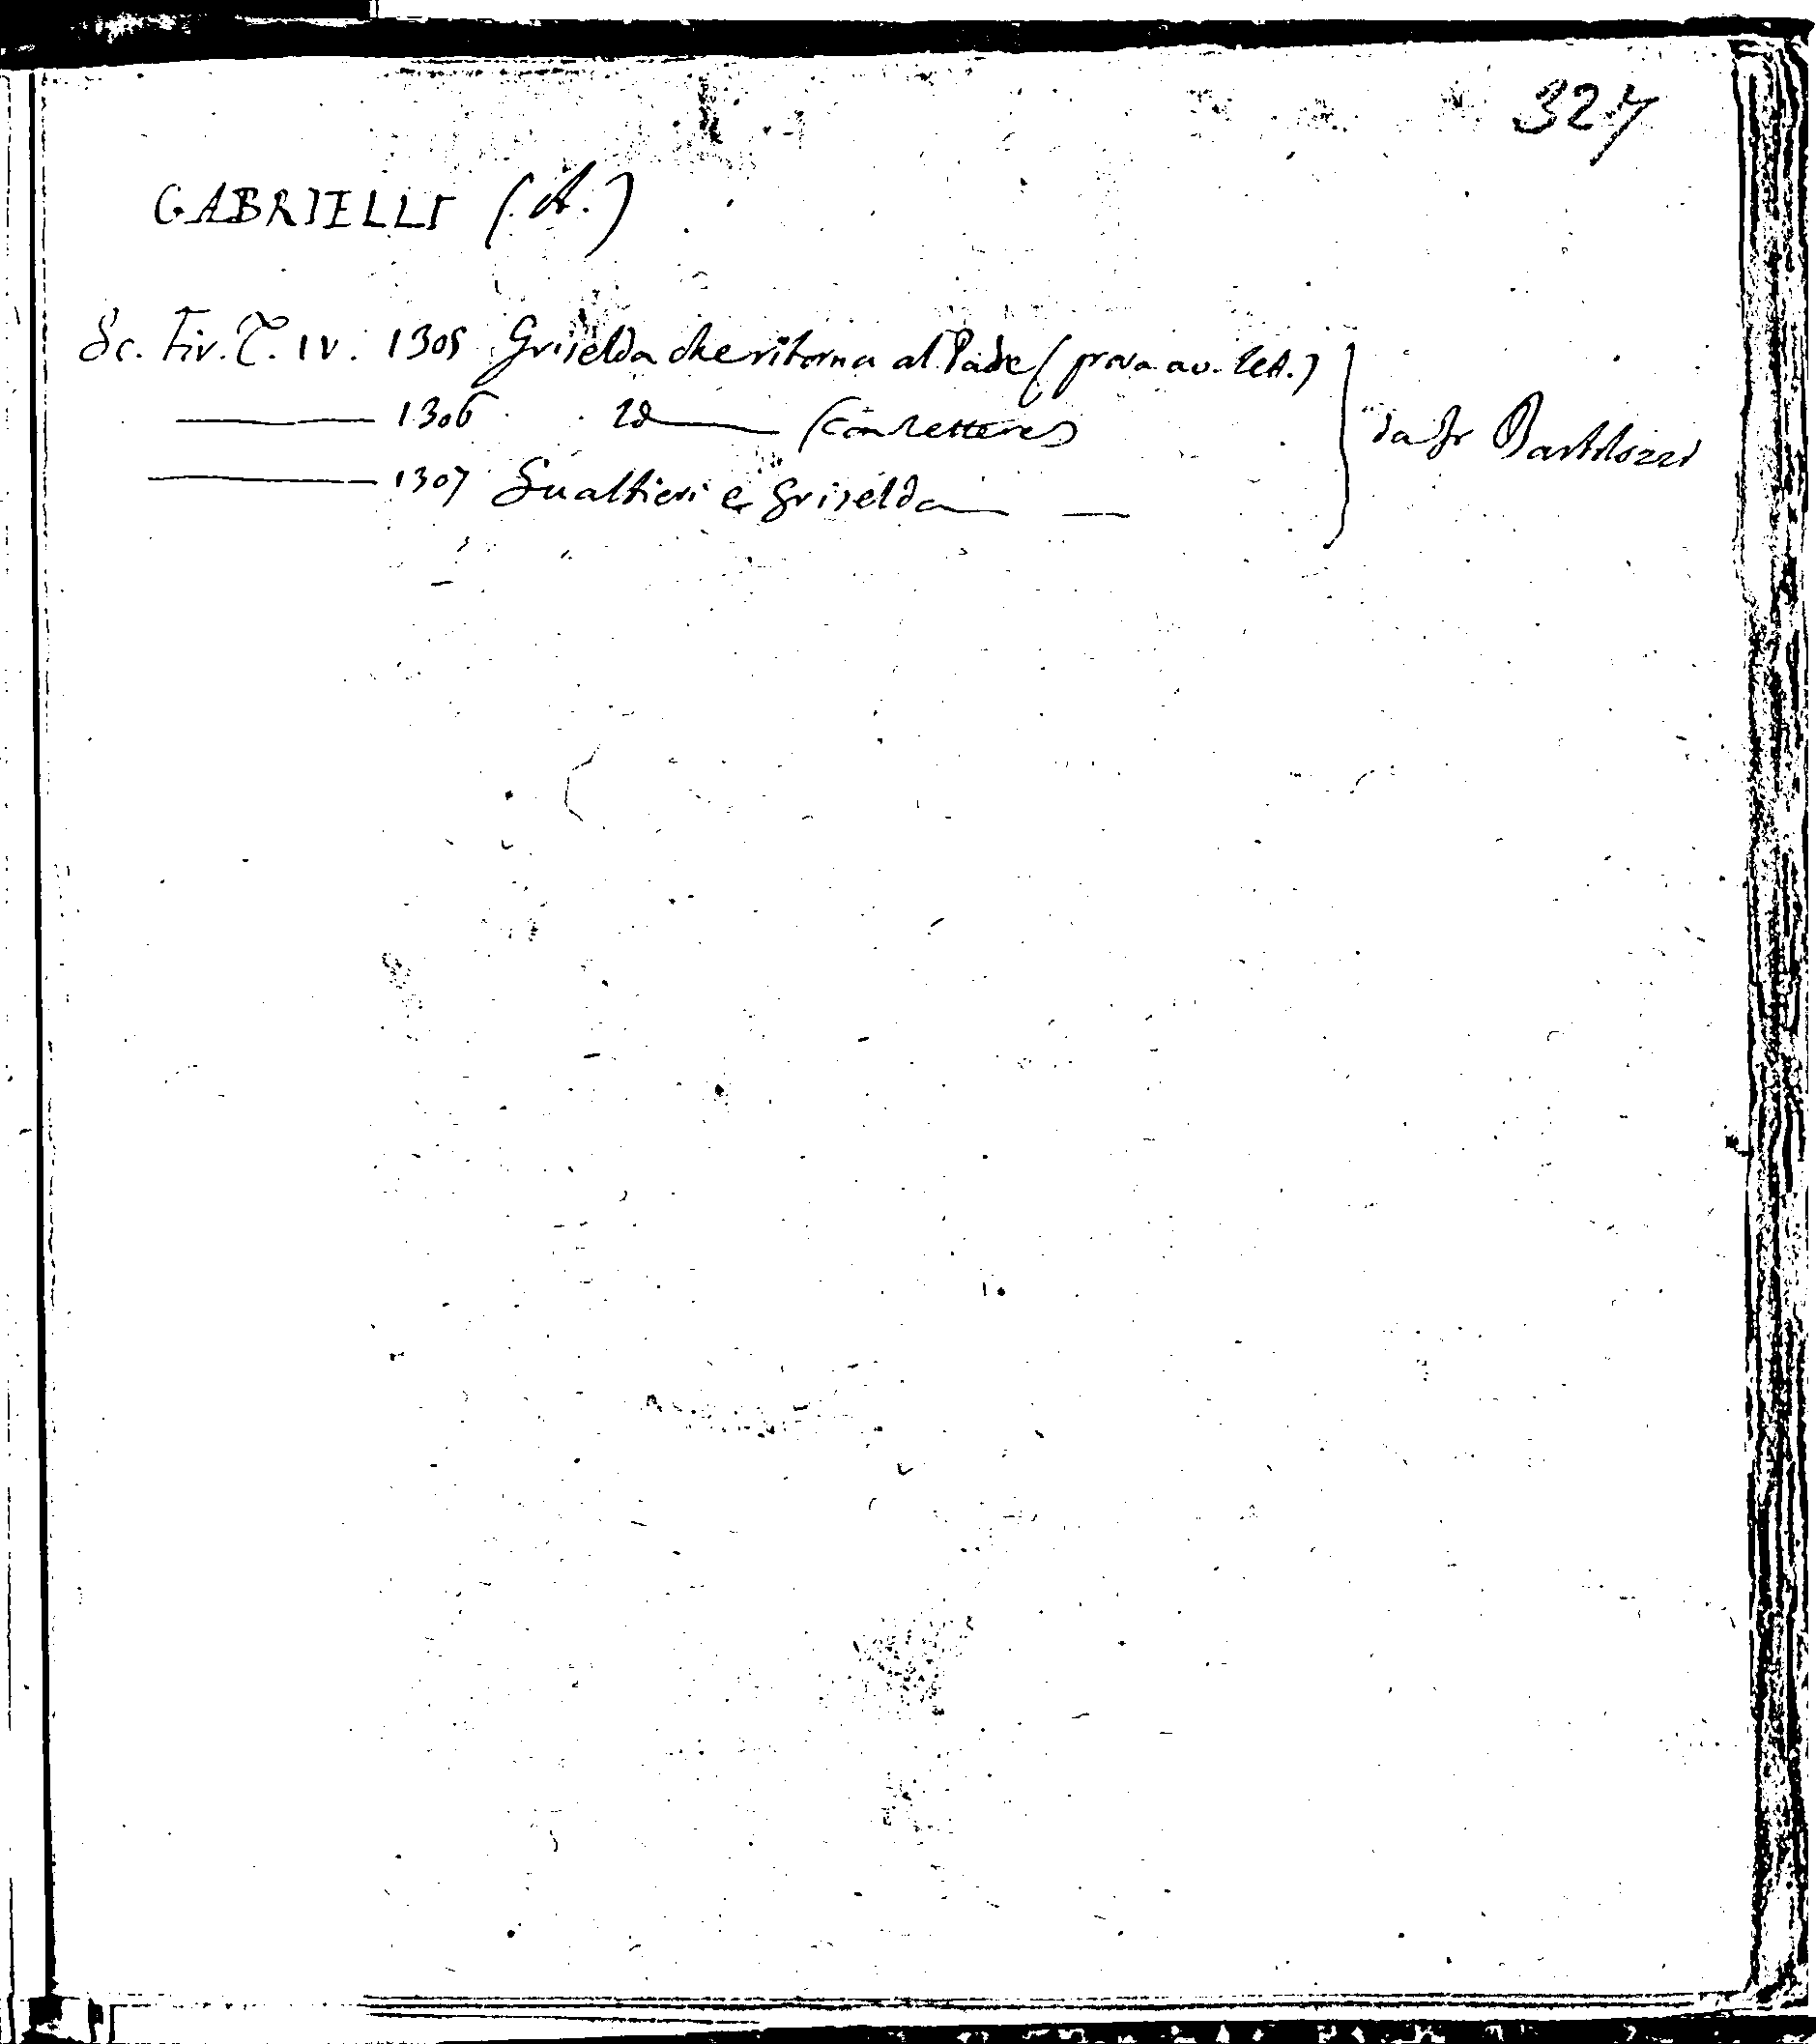 327
GABRIELLI (A.)
Sc. Fir. T. IV. 1305 Griselda che ritorna al Padre (prova av. let.)
——— 1306 Id——— (con lettere)
——— 1307 Gualtieri e Griselda — —
da Fr Bartolozzi